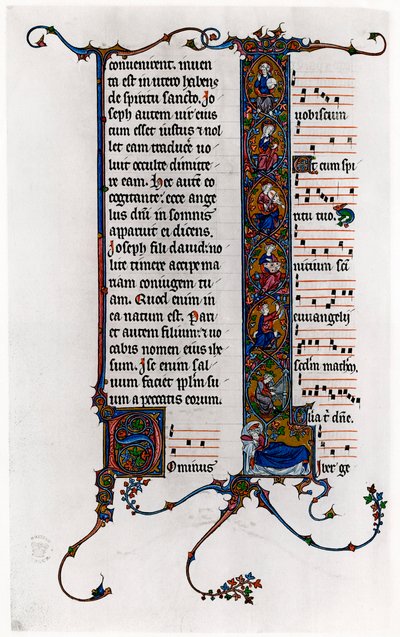 conuenirent. inuen
ta est in utero habens
de spiritu sancto. Jo
seph autem uir eius
cum esset iustus ⁊ nol
let eam traduc̄e uo
luit occulte dimitte
re eam. Hec aut̄ eo
cogitante: ecce ange
lus dn̄i in somnis
apparuit ei dicens.
Joseph fili dauid: no
lite timere accipe ma
riam coniugem tu
am. Quod enim in
ea natum est. Pari
et autem filium: ⁊ uo
cabis nomen eius ihe
sum. Ipse enim sal
uum faciet pplm su
um a peccatis eorum.
Dominus
uobiscum
Et cum spi
ritu tuo.
nitium sc̄i
euuangelij
scd̄m mathm̄.
Gl̄ia t̄ dn̄e.
Liber ge